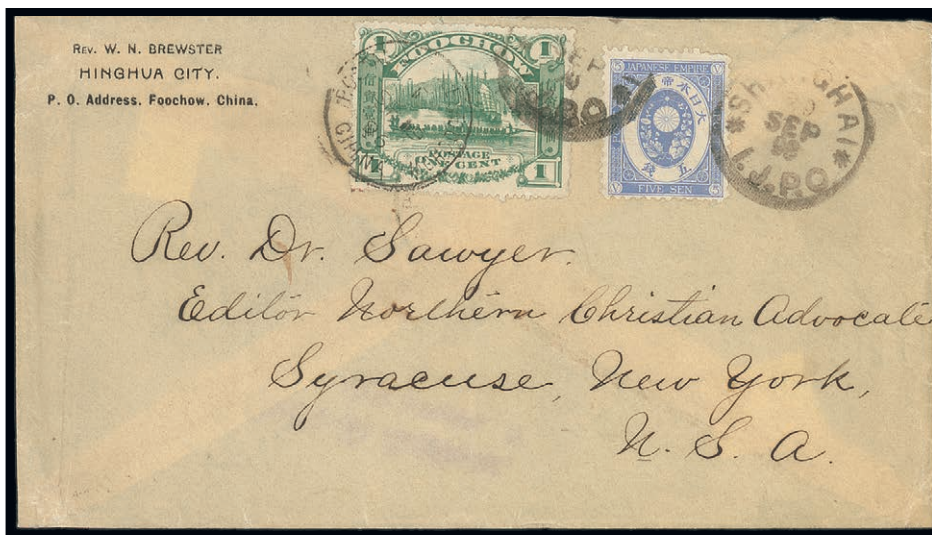 REV. W. N. BREWSTER
HINGHUA CITY.
P. O. Address, Foochow, China.
1 FOOCHOW 1
POSTAGE
ONE CENT
1 1
JAPANESE EMPIRE
大日本帝
五
FIVE SEN
SEP
I.J.P.O
SHANGHAI
SEP
I.J.P.O
Rev. Dr. Sawyer.
Editor Northern Christian Advocate
Syracuse, New York,
U. S. A.